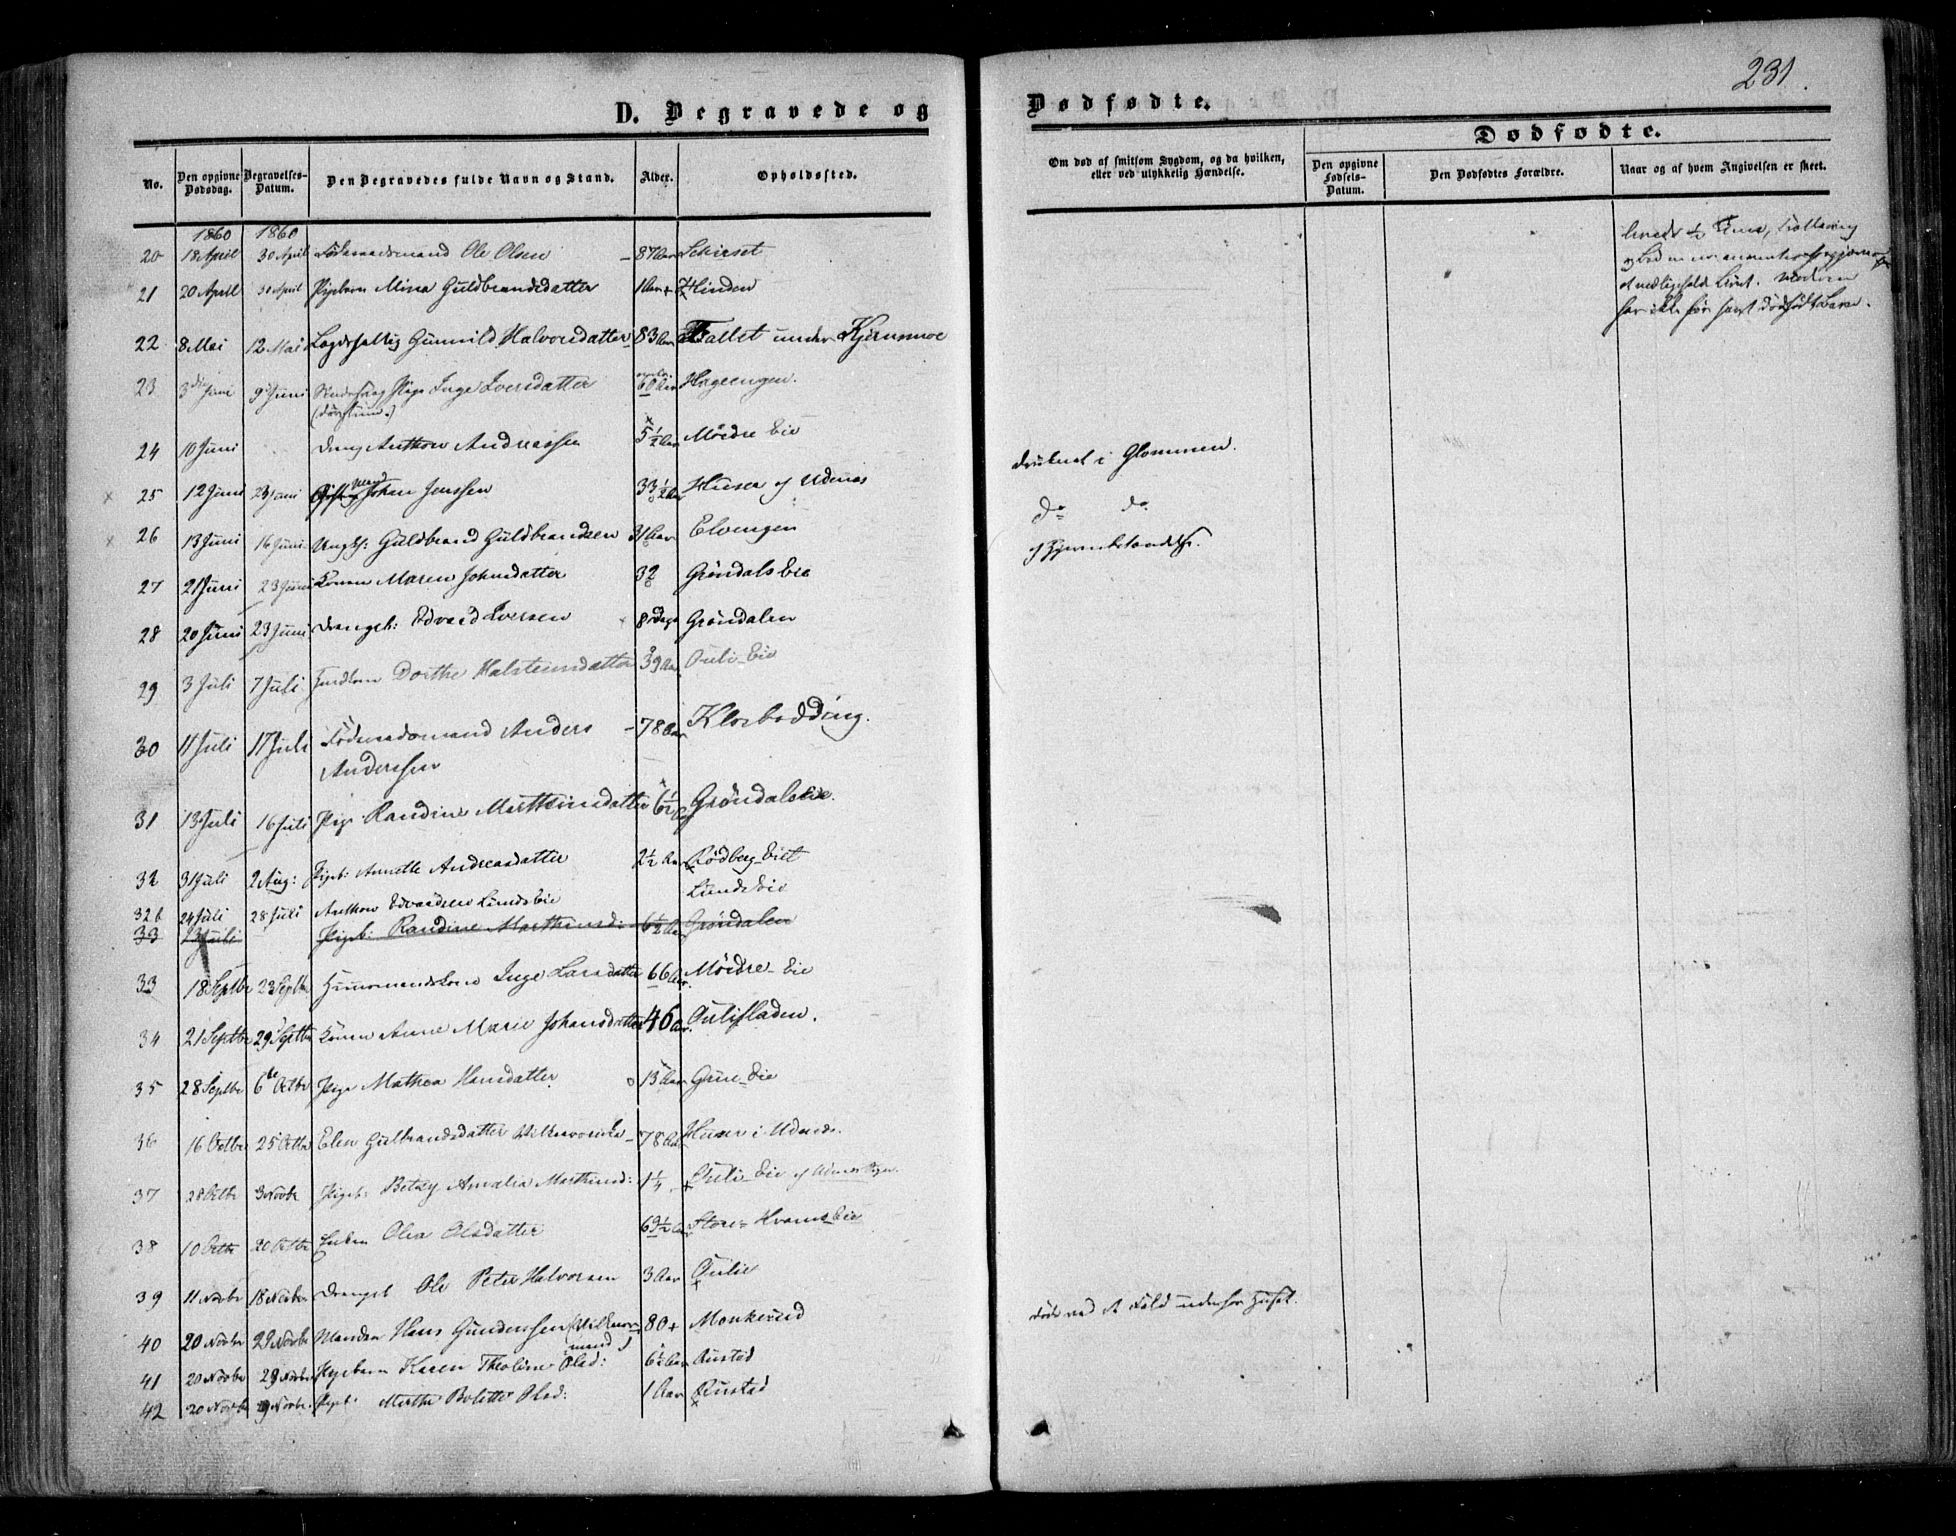 231.
D. Begravede og Dødfødte.
Dødfødte.
No. Den opgivne Dødsdag. Begravelses-Datum. Den Begravedes fulde Navn og Stand. Alder. Opholdssted.
Om død af smitsom Sygdom, og da hvilken, eller ved ulykkelig Hændelse. Den opgivne Fødsels-Datum. Den Dødfødtes Forældre. Naar og af hvem Angivelsen er skeet.
1860 1860
20 18 April 30 April Föderaadsmand Ole Olsen 87 Aar
21 20 April 30 April Pigebarn Mina Guldbrandsdatter 1 Aar Hinden
22 8 Mai 12 Mai Lægdsfattig Gunnild Halvorsdatter 83 Aar under Kjernmoe
23 3die Juni 9 Juni Pige Inge Iversdatter 60 Aar Hageengen.
24 10 Juni Dreng Anthon Andreassen 5½ Aar Möidre Eie
druknet i Glommen.
25 12 Juni 23 Juni Johan Jenssen 33½ Aar Huser af Udenæs
do do
26 13 Juni 16 Juni Ungk: Guldbrand Guldbrandsen 31 Aar Elvengen
27 21 Juni 23 Juni Konen Maren Johnsdatter 32 Gröndals Eie
28 20 Juni 23 Juni Drengeb: Edvard Iversen 8 Dage Gröndalen
29 3 Juli 7 Juli Dorthe Halsteinsdatter 39 Aar Auli-Eie
30 11 Juli 17 Juli Föderaadsmand Anders 78 Aar Kloboding.
Anderssen
31 13 Juli 16 Juli Pige Randine Marthinsdatter 6½ Gröndalseie.
32 31 Juli 2 Aug: Pigeb: Annette Andreasdatter 2½ Aar Rödberg-Eiet
32b 24 Juli 28 Juli Anthon Edvardsen Lunds Eie Lunds Eie
33 13 Juli Pigeb: Randine Marthinsd: 6½ Aar Gröndalen
33 18 Septbr 23 Septbr Huusmandskone Inge Larsdatter 66 Aar. Möidre-Eie
34 21 Septbr 29 Septbr Konen Anne Marie Johansdatter 46 Aar. Aulifladen.
35 28 Septbr 6te Octbr Pige Mathea Hansdatter 13 Aar Grue-Eie
36 16 Octbr 25 Octbr Elen Gulbrandsdatter 78 Aar Huser i Udenæs.
37 28 Octbr 3 Novbr Pigeb: Betzy Amalia Marthinsd: 1¼ Auli-Eie af
38 10 Octbr 20 Octbr Enken Olea Olsdatter 69½ Aar Store-Hvams Eie
39 11 Novbr 18 Novbr Drengeb Ole Peter Halvorsen 3 Aar Aulie
40 20 Novbr 29 Novbr Manden Hans Gunderssen 80 Monkerud
død ved et Fald udenfor Huset.
41 20 Novbr 29 Novbr Pigebarn Karen Theoline Olsd: 6½ Aar Rustad
42 20 Novbr 29 Novbr. Pigeb: Marthe Bolette Olsd: 1 Aar Rustad